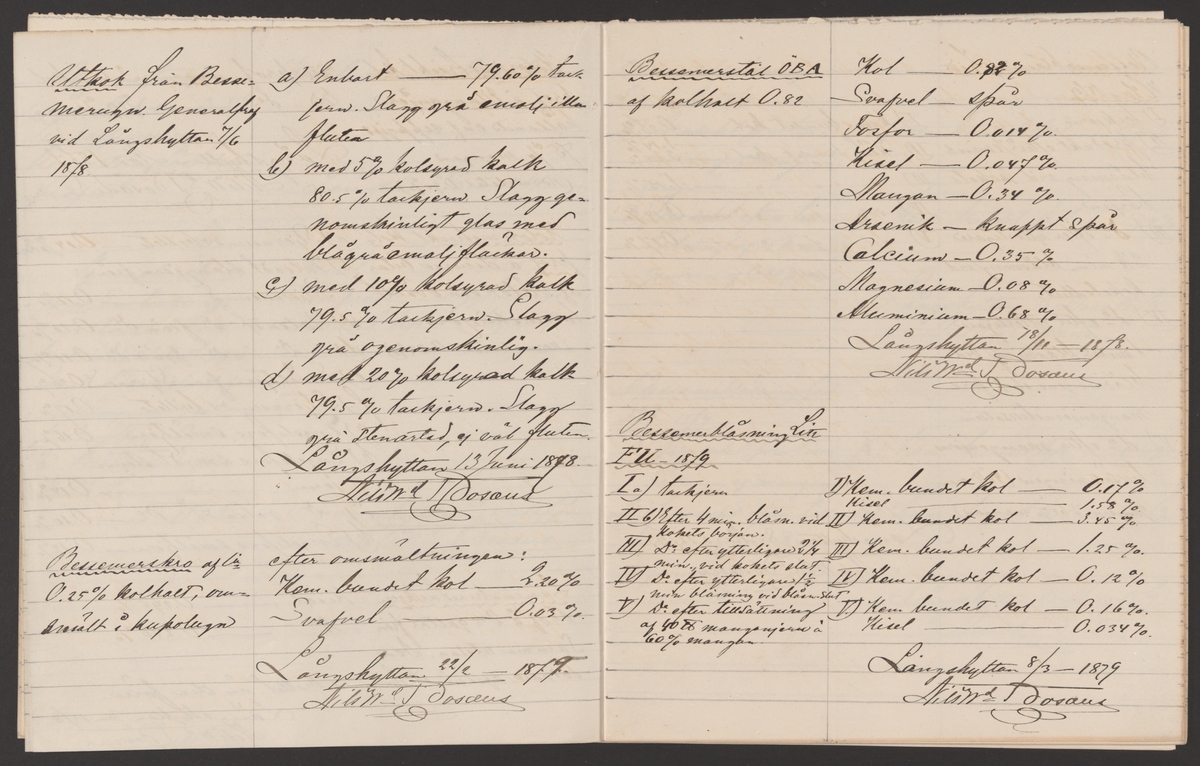 Utkok från Besse-
merugn. Generalprof
vid Långshyttan 7/6
1878
a) Enbart — 79.60% tack-
jern. Slagg grå emalj illa
fluten
b) med 5% kolsyrad kalk
80.5% tackjern. Slagg ge-
nomskinligt glas med
blågrå emaljfläckar.
c) med 10% kolsyrad kalk
79.5% tackjern. Slagg
grå ogenomskinlig.
d) med 20% kolsyrad kalk
79.5% tackjern. Slagg
grå stenartad, ej väl fluten.
Långshyttan 13 Juni 1878.
Bessemerskro af c:a
0.25% kolhalt, om-
smält i kupolugn
efter omsmältningen:
Kem. bundet kol — 2.20%
Svafvel — 0.03%.
Långshyttan 22/2 — 1879.
Bessemerstål ÖBA
af kolhalt 0.82
Kol — 0.82%
Svafvel — spår
Fosfor — 0.014%.
Kisel — 0.047%.
Mangan — 0.34%.
Arsenik — knappt spår
Calcium — 0.35%
Magnesium — 0.08%
Aluminium — 0.68%
Långshyttan 18/11 — 1878.
Bessemerblåsning
1879
I a) tackjern
II b) Efter 4 min. blåsn. vid
kokets början.
III) Do efter ytterligare 2 1/4
min. vid kokets slut
IV) Do efter ytterligare 1/2
min blåsning vid blåsn. slut
V) Do efter tillsättning
af 40 ℔ manganjern à
60% mangan
I) Kem. bundet kol — 0.17%
Kisel — 1.58%
II) Kem. bundet kol — 3.45%
III) Kem. bundet kol — 1.25%.
IV) Kem. bundet kol — 0.12%
V) Kem. bundet kol — 0.16%.
Kisel — 0.034%.
Långshyttan 8/3 — 1879